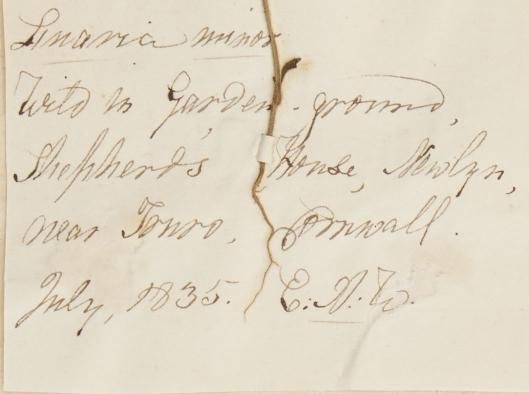 Linaria minor
Wild in Garden-ground,
Shepherds House, Newlyn,
near Truro, Cornwall.
July, 1835. E. N. W.